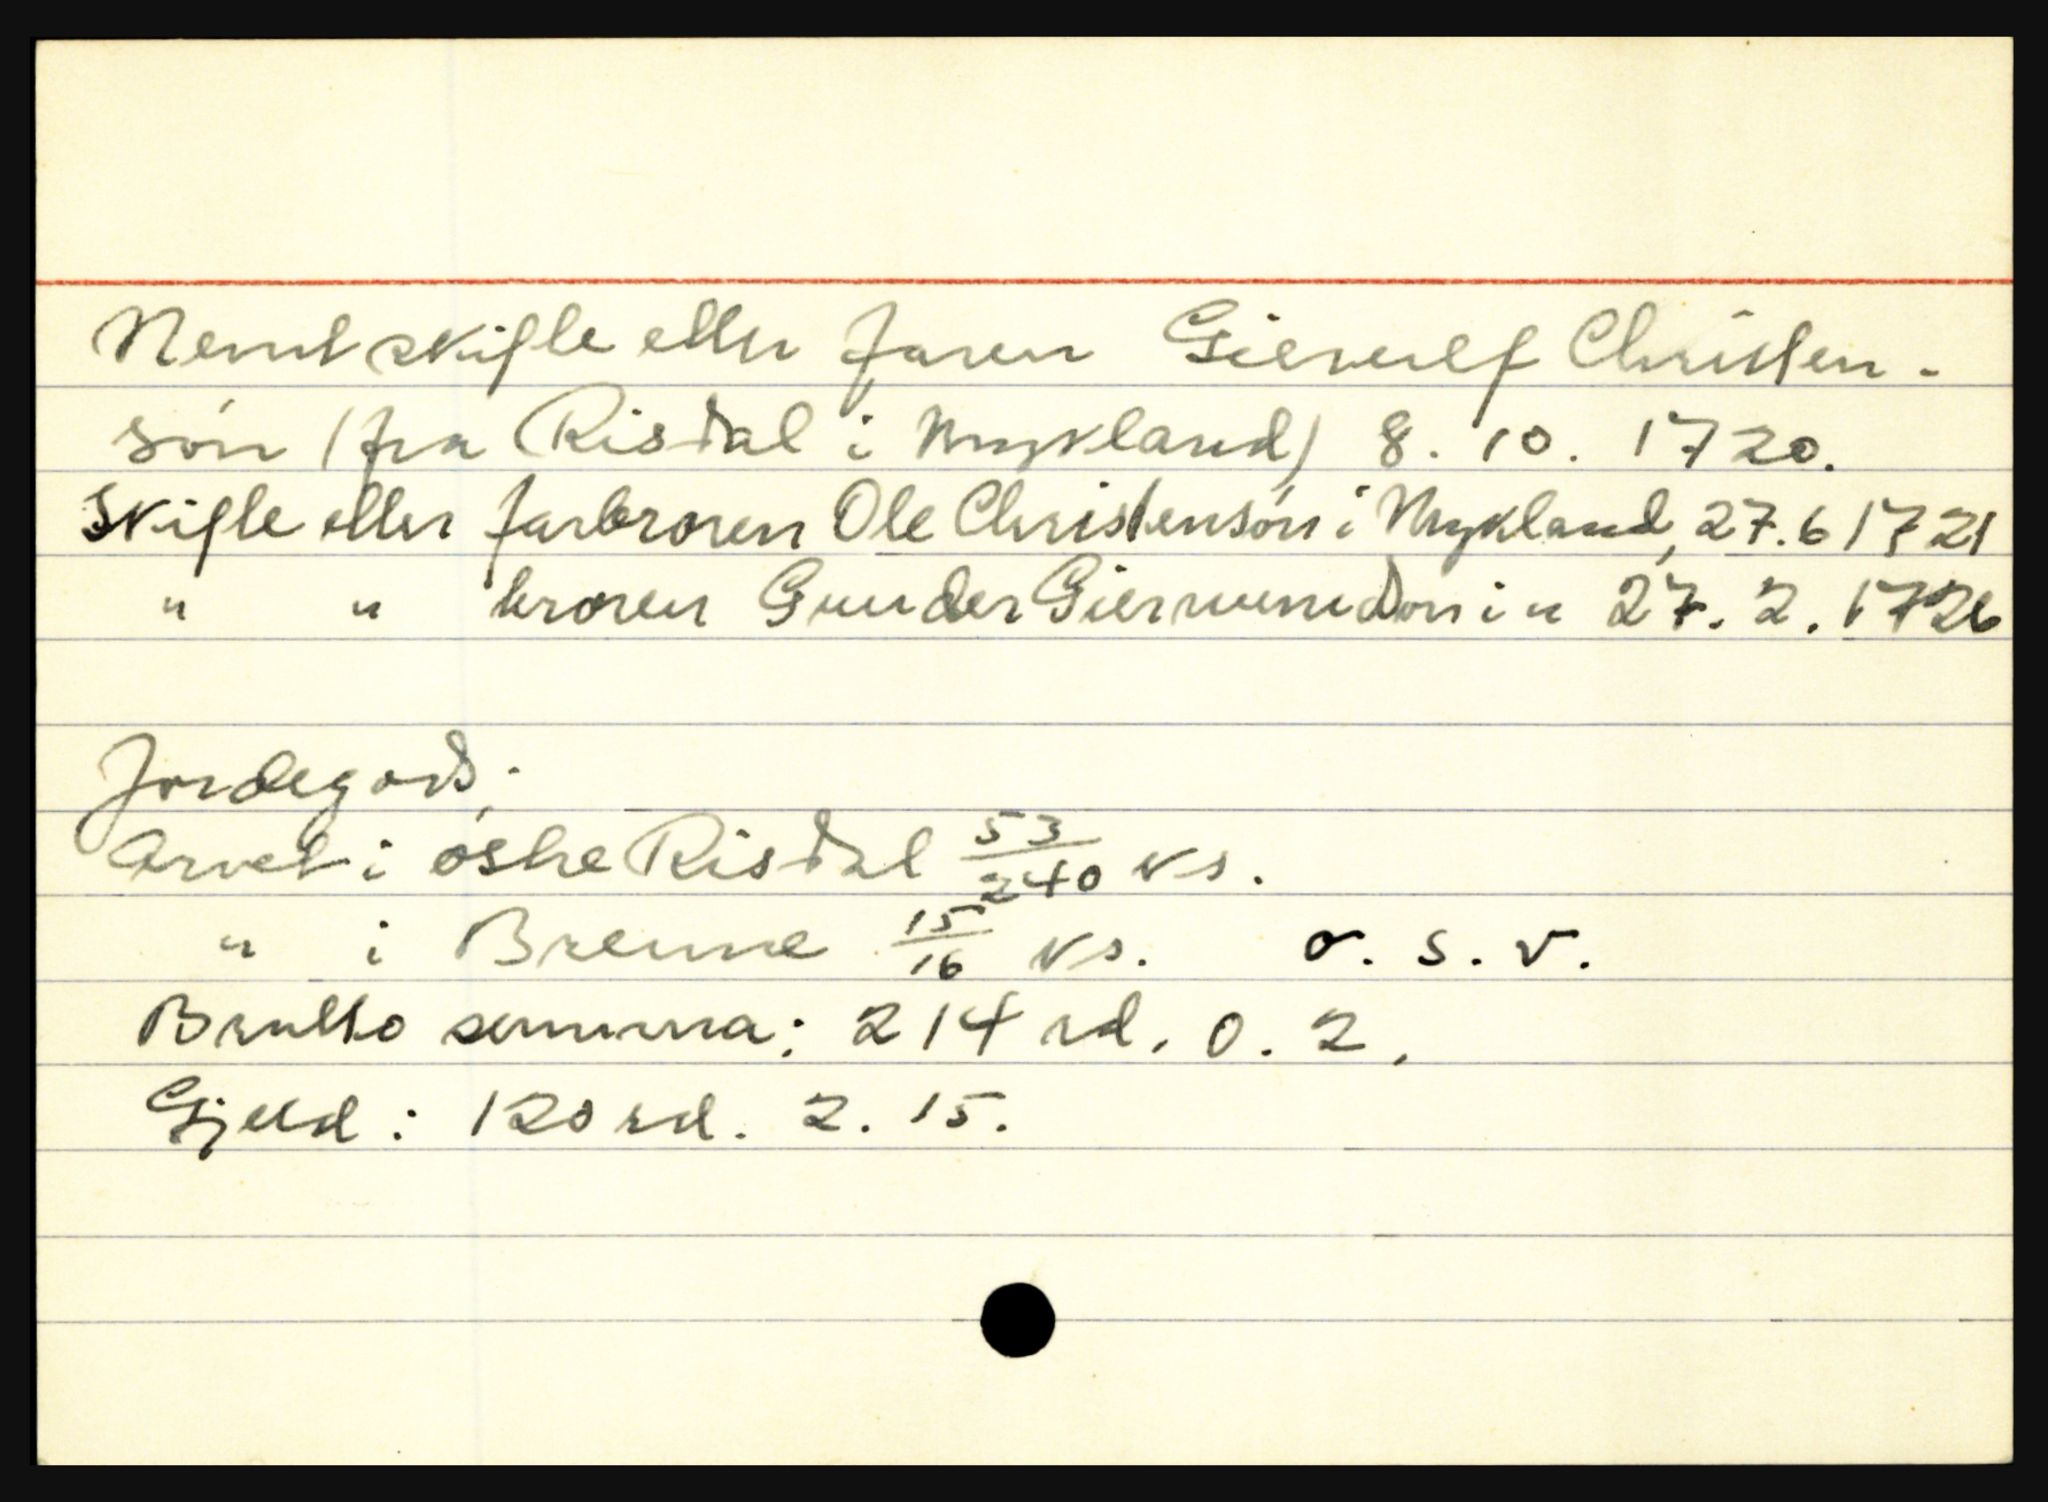 Nemt skifte etter faren Gierulf Christen-
són (fra Risdal i Mykland) 8. 10. 1720.
Skifte etter farbroren Ole Christensón i Mykland, 27.6 1721
" " broren Gunder i " 27. 2. 1726
Jordegods:
Arvet i óstre Risdal 53/240 ks.
" i Brenne 15/16 ks. o. s. v.
Brutto summa: 214 rd. 0. 2.
Gjeld: 120 rd. 2. 15.